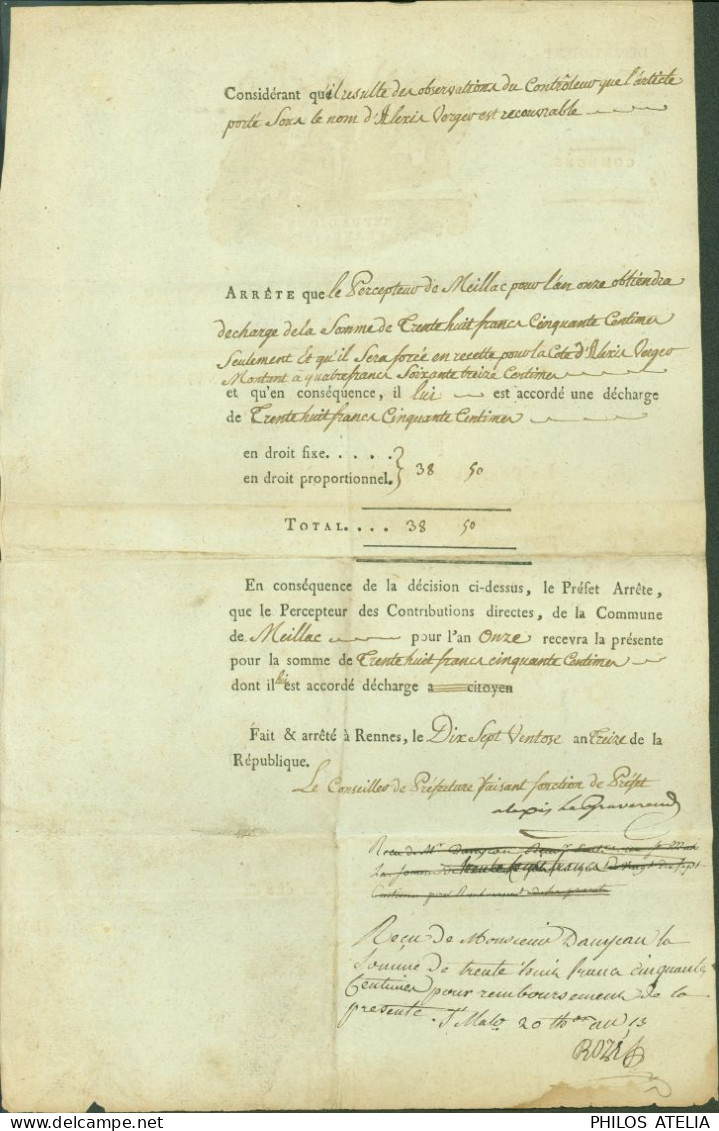 Considérant qu'il resulte des observations du Contrôleur que l'article
porté Sous le nom d'Alexis Vorger est recouvrable
ARRÊTE que le Percepteur de Meillac pour l'an onze obtiendra
decharge de la Somme de Trente huit francs Cinquante Centimes
Seulement Et qu'il Sera forcé en recette pour la Cote d'Alexis Vorger
Montant a quatre francs Soixante treize Centimes
et qu'en conséquence, il lui est accordé une décharge
de Trente huit francs Cinquante Centimes
en droit fixe. . . . .
en droit proportionnel. } 38 50
TOTAL. . . . 38 50
En conséquence de la décision ci-dessus, le Préfet Arrête,
que le Percepteur des Contributions directes, de la Commune
de Meillac pour l'an Onze recevra la présente
pour la somme de Trente huit francs cinquante Centimes
dont il lui est accordé décharge a citoyen
Fait & arrêté à Rennes, le Dix Sept Ventose an Treize de la
République.
Le Conseiller de Préfecture faisant fonction de Préfet
alexis Le Graverend
Recu de Mr Danycan
La somme de trente huit francs
Centimes pour Remboursement de la presente
Reçu de Monsieur Danycan la
Somme de trente huit francs cinquante
Centimes pour remboursement de la
presente. St Malo 20 an 13
ROZÉ
PHILOS ATELIA